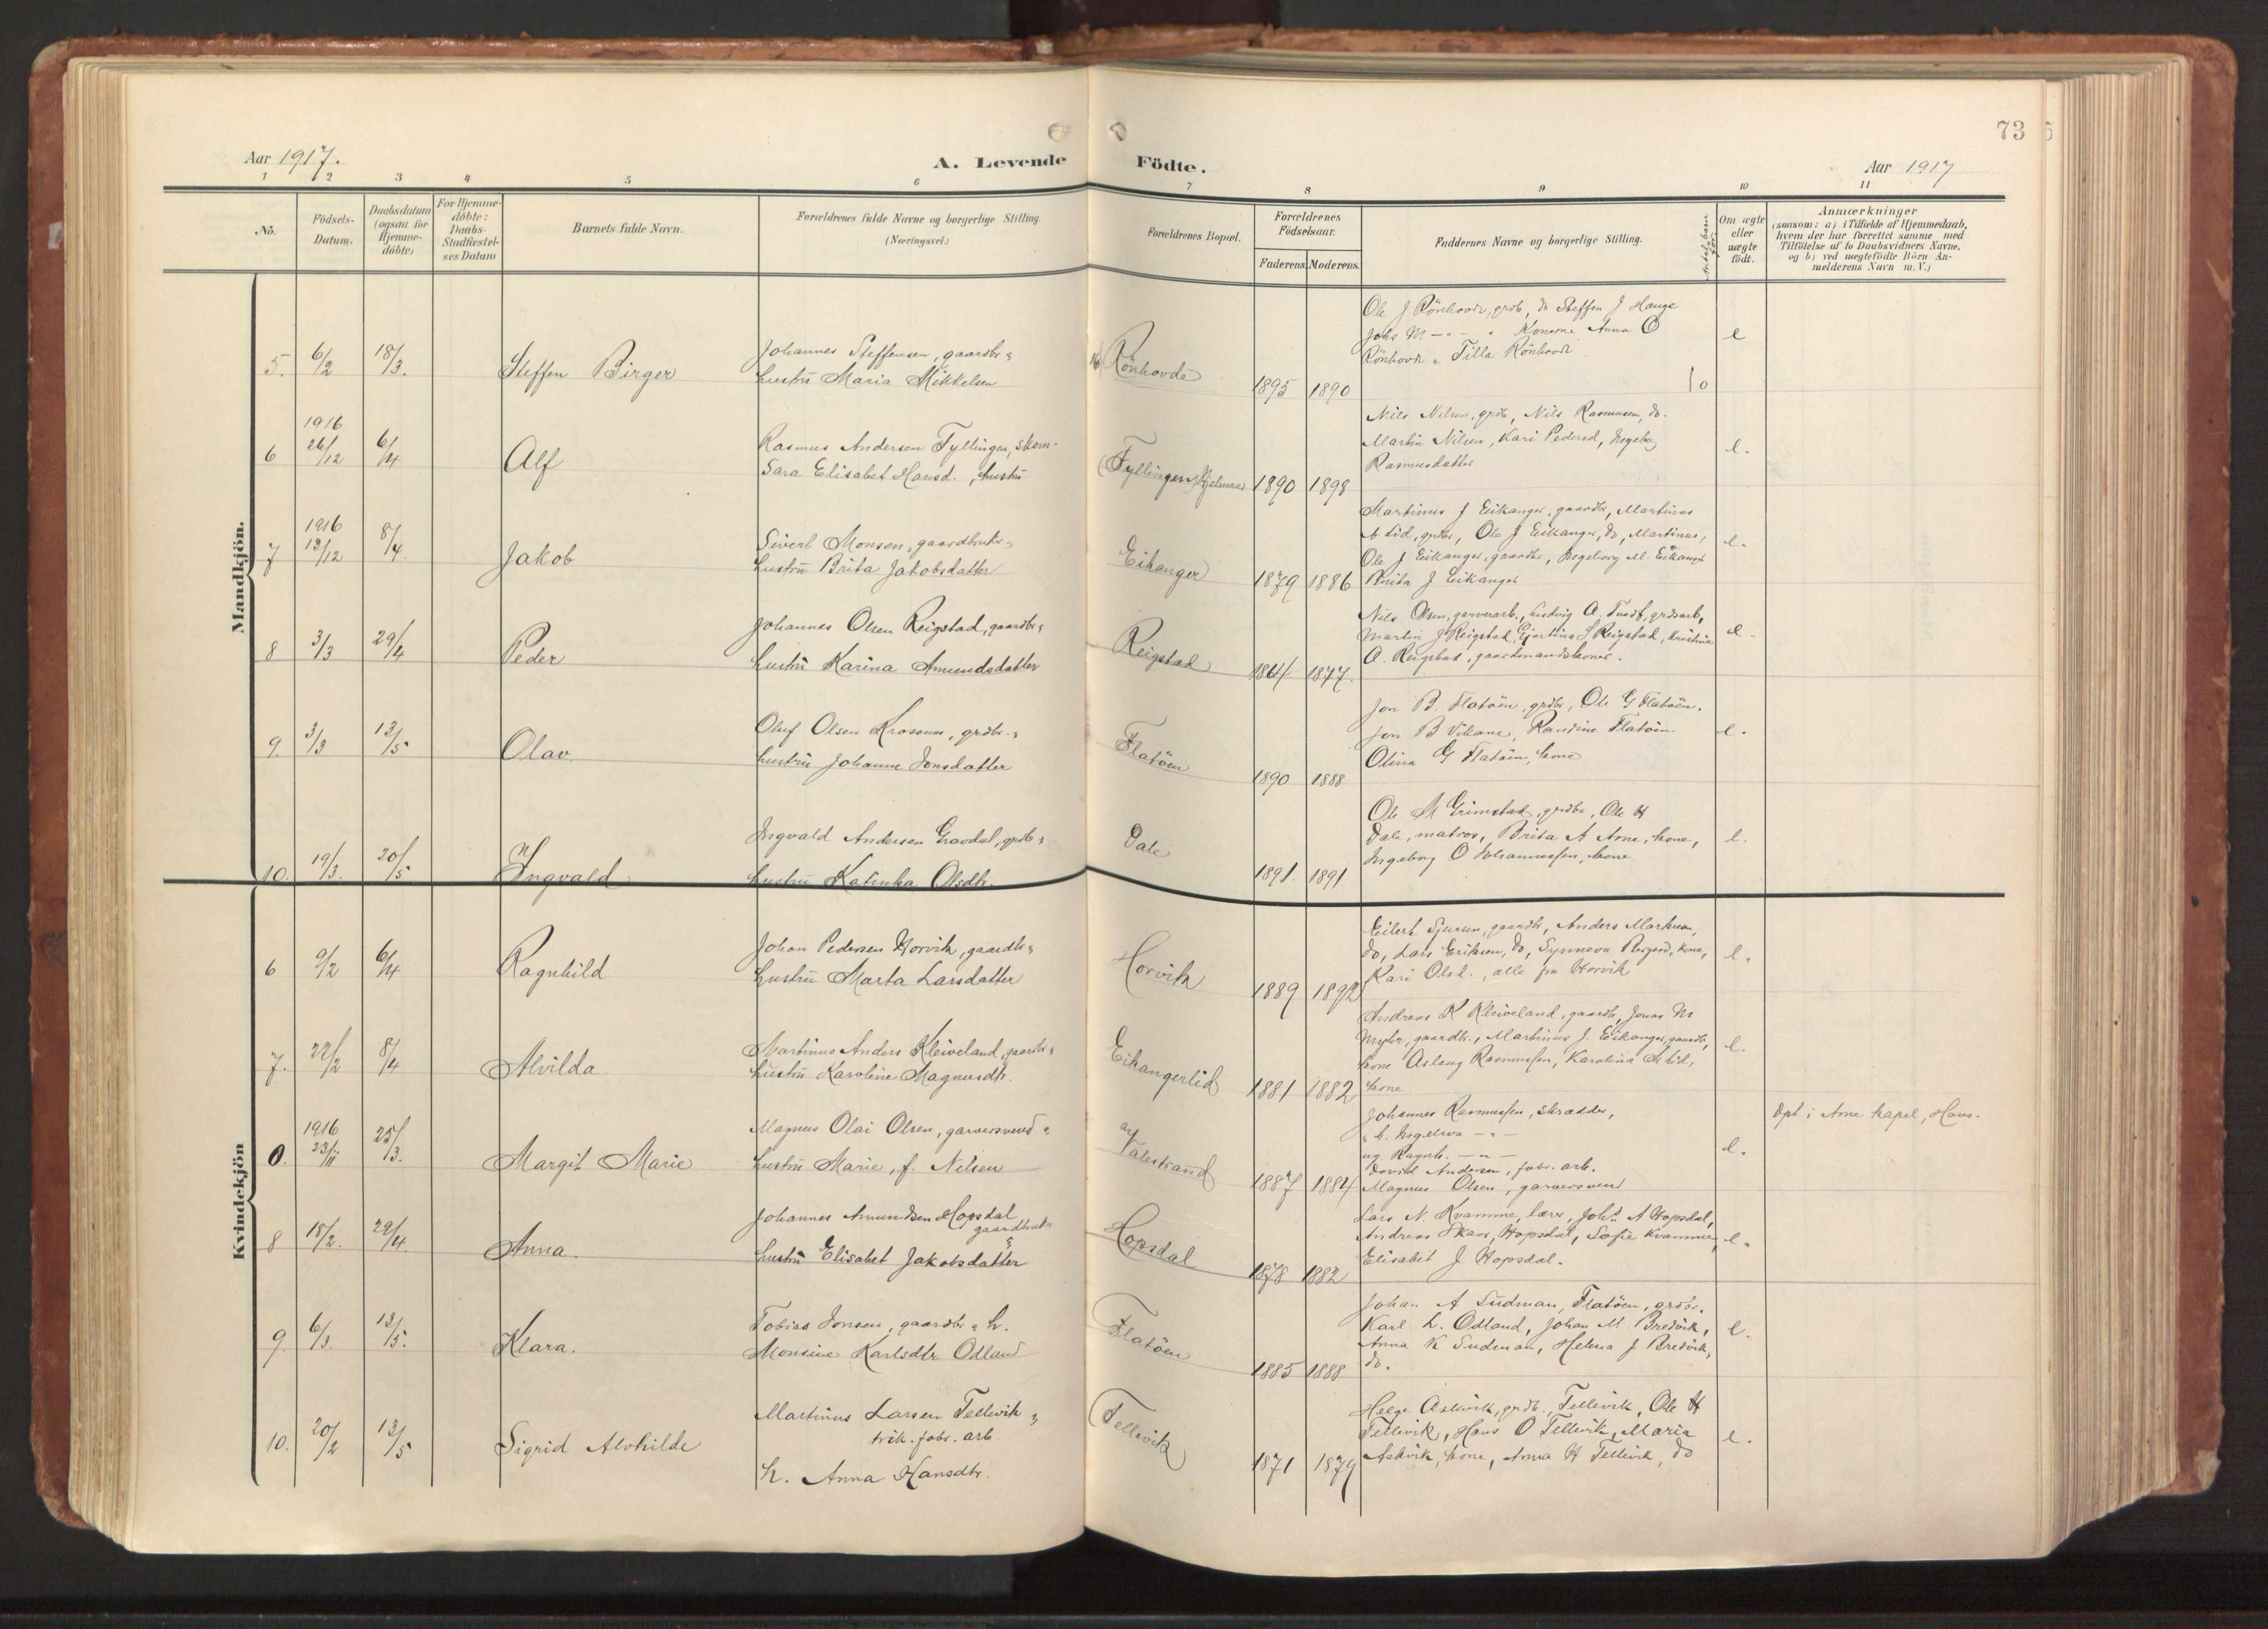 73
Aar 1917.
A. Levende Födte.
Aar 1917
1 2 3 4 5 6 7 8 9 10 11
No.
Födsels-Datum.
Daabsdatum (ogsaa for Hjemme-döbte)
For Hjemme-döbte: Daabs-Stadfæstel-ses Datum
Barnets fulde Navn.
Forældrenes fulde Navne og borgerlige Stilling. (Næringsvei.)
Forældrenes Bopæl.
Forældrenes Födselsaar.
Faderens. Moderens.
Faddernes Navne og borgerlige Stilling.
Om ægte eller uægte födt.
Anmærkninger
(saasom: a) i Tilfælde af Hjemmedaab,
hvem der har forrettet samme med
Tilföielse af to Daabsvidners Navne,
og b) ved uægtefödte Börn An-
melderens Navn m. V.)
Mandkjön.
5. 6/2 18/3. Steffen Birger
Johannes Steffensen, gaardbr
hustru Maria Mikkelsen
Rönhovde
1895 1890
Ole J Rönhovde, grdb, do Steffen J Hauge
Johs M Konerne Anna O
Rönhovde Tilla Rönhovde
e
6 1916 26/12 6/4 Alf
Rasmus Andersen Fyllingen, skom.
Sara Elisabet Hansd., hustru
Fyllingen, Hjelmaas
1890 1898
Nils Nilsen, grdb, Nils Rasmusen, do.
Martin Nilsen, Kari Pedersd, Ingeborg
Rasmusdatter
e.
7 1916 13/12 8/4. Jakob
Sivert Monsen, gaardbruker
hustru Brita Jakobsdatter
Eikanger
1879 1886
Martinus J Eikanger, gaardbr, Martinus
A Lid, grdbr, Ole J Eikanger, do, Martinus,
Ole J Eikanger, gaardbr, Ingeborg M. Eikanger
Brita J Eikanger
e.
8 3/3 29/4 Peder
Johannes Olsen Reigstad, gaardbr
hustru Karina Amundsdatter
Reigstad
1864 1877.
Nils Olsen, garverarb., Ludvig O. Tvedt, grdsarb,
Martin J Reigstad, Gjertina S Reigstad, Kristine
O. Reigstad, gaardmandskoner.
e.
9. 3/3 13/5 Olav
Oluf Olsen Krossnes, grdbr.
hustru Johanne Jonsdatter
Flatöen
1890 1888
Jon B. Flatöen, grdbr, Ole G Flatöen.
Jon B Villane, Randine Flatöen
Olina G Flatöen, kone
e.
10. 19/3. 20/5 Yngvald
Ingvald Andersen Gravdal, grdb
hustru Katinka Olsdtr.
Dale
1891. 1891
Ole M Grimstad, grdbr, Ole H
Dale, matros, Brita A Arne, kone,
Ingeborg O Johannessen, kone
e.
Kvindekjön
6 9/2 6/4 Ragnhild
Johan Pedersen Horvik, gaardbr
hustru Marta Larsdatter
Horvik
1889 1892
Eilert Sjursen, gaardbr, Anders Markusen,
do, Lars Eriksen, do, Synneva kone,
Kari Olsd., alle fra Horvik
e.
7. 22/2 8/4 Alvilda
Martinus Anders Kleiveland, gaardbr
hustru Karoline Magnusdtr.
Eikangerlid
1881 1882
Andreas K Kleiveland, gaardb, Jonas M
Myhr, gaardbr., Martinus J. Eikanger, gaardb,
kone Aslaug Rasmussen, Karolina A Lid,
kone
e.
0. 1916 23/11 25/3. Margit Marie
Magnus Olai Olsen, garversvend
hustru Marie, f. Nilsen
Valestrand
1887 1884
Johannes Rasmussen, skrædder,
h. Ingeleiva
ug. Ragnh.
David Andersen, fabr. arb.
Magnus Olsen, garversvend
e.
Dpt i Arne kapel, Haus.
8 18/2. 29/4. Anna.
Johannes Amundsen Hopsdal
gaardbruker
hustru Elisabet Jakobsdatter
Hopsdal
1878 1882
Lars N. Kvamme, lærer, Johs A Hopsdal,
Andreas Skaar, Hopsdal, Sofie Kvamme,
Elisabet J Hopsdal.
e.
9 6/3. 13/5. Klara.
Tobias Jonsen, gaardbr h.
Monsine Karlsdtr Odland
Flatöen
1885 1888
Johan A Sudman, Flatöen, grdbr.
Karl L. Odland, Johan M. Bredvik,
Anna K Sudman, Helena J Bredvik,
do.
e.
10. 20/2 13/5 Sigrid Alvhilde
Martinus Larsen Tellevik
trik. fabr. arb
h. Anna Hansdtr.
Tellevik
1871 1879
Helge Askvik, grdb., Tellevik, Ole H
Tellevik, Hans O Tellevik, Maria
Askvik, kone, Anna H Tellevik, do
e.